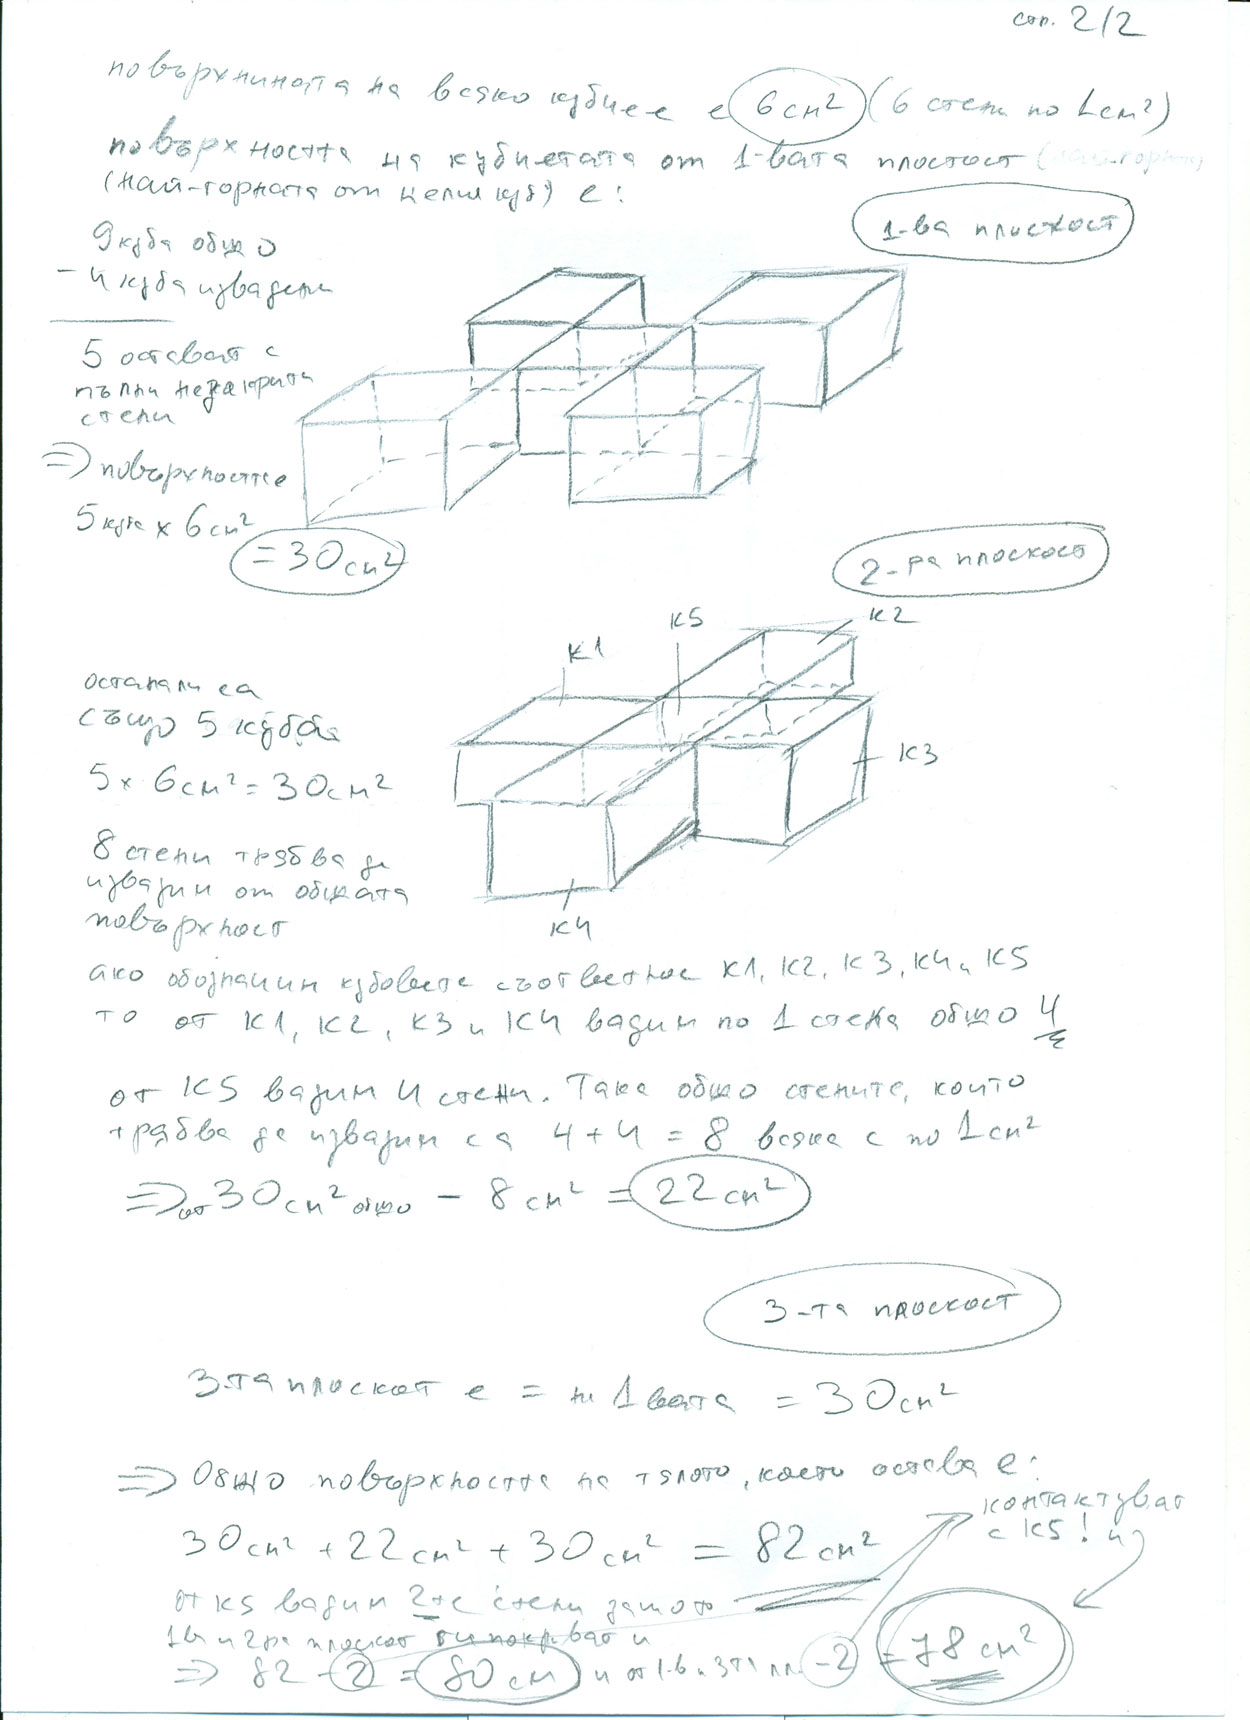 стр. 2/2
повърхнината на всяко кубче е 6 см² (6 стени по 1 см²)
повърхността на кубчетата от 1-вата плоскост (най-горната
(най-горната от целия куб) е:
1-ва плоскост
9 куба общо
- 4 куба извадени
5 остават с
пълни незакрити
стени
=> повърхността е
5 куба x 6 см²
= 30 см²
2-ра плоскост
К5
К2
К1
К3
К4
останали са
също 5 куба
5 x 6 см² = 30 см²
8 стени трябва да
извадим от общата
повърхност
ако обозначим кубовете съответно К1, К2, К3, К4 и К5
то от К1, К2, К3 и К4 вадим по 1 стена общо 4
от К5 вадим 4 стени. Така общо стените, които
трябва да извадим са 4 + 4 = 8 всяка с по 1 см²
=> от 30 см² общо - 8 см² = 22 см²
3-та плоскост
3-та плоскост е = на 1вата = 30 см²
=> Общо повърхността на тялото, което остава е:
30 см² + 22 см² + 30 см² = 82 см²
контактуват
с К5! и
от К5 вадим 2те стени защото
1ва и 2ра плоскост ги покриват и
=> 82 - 2 = 80 см и от 1-в и 3та пл. - 2 = 78 см²